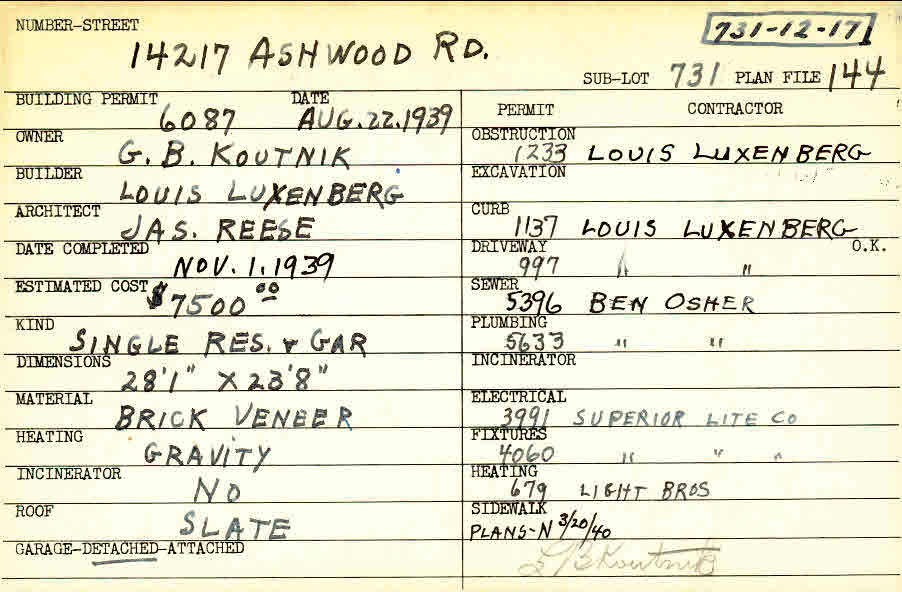 NUMBER-STREET
14217 ASHWOOD RD.
731-12-17
SUB-LOT 731 PLAN FILE 144
BUILDING PERMIT DATE
6087 AUG.22.1939
OWNER
G. B. KOUTNIK
BUILDER
LOUIS LUXENBERG
ARCHITECT
JAS. REESE
DATE COMPLETED
NOV. 1, 1939
ESTIMATED COST
$7500 00
KIND
SINGLE RES. & GAR
DIMENSIONS
28'1" X 23'8"
MATERIAL
BRICK VENEER
HEATING
GRAVITY
INCINERATOR
NO
ROOF
SLATE
GARAGE-DETACHED-ATTACHED
PERMIT CONTRACTOR
OBSTRUCTION
1233 LOUIS LUXENBERG
EXCAVATION
CURB
1137 LOUIS LUXENBERG
DRIVEWAY O.K.
997 " "
SEWER
5396 BEN OSHER
PLUMBING
5633 " "
INCINERATOR
ELECTRICAL
3991 SUPERIOR LITE CO
FIXTURES
4060 " " "
HEATING
679 LIGHT BROS
SIDEWALK
PLANS-N 3/20/40